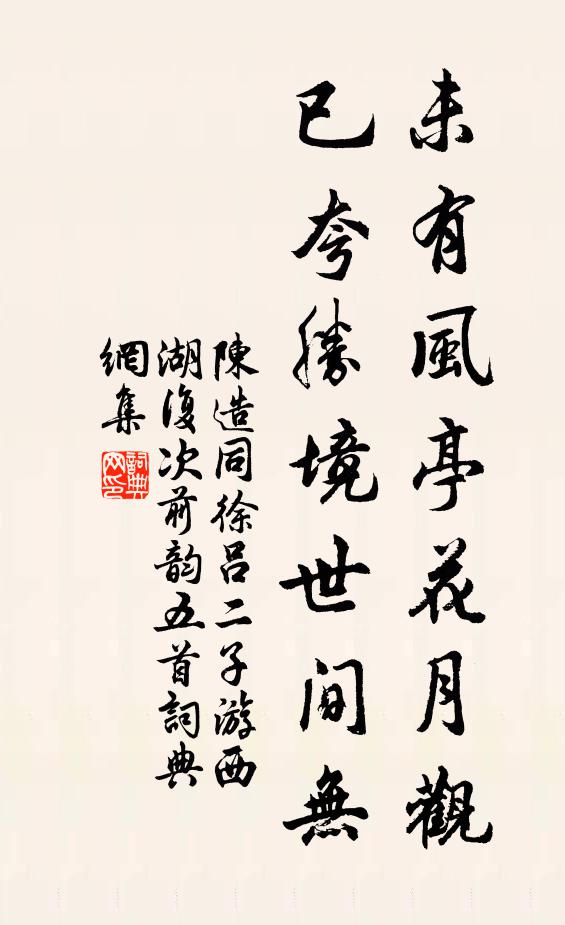 未有風亭花月觀
已夸勝境世間無
陳造同徐呂二子游西
湖復次前韵五首詞典
網集
詞典網印